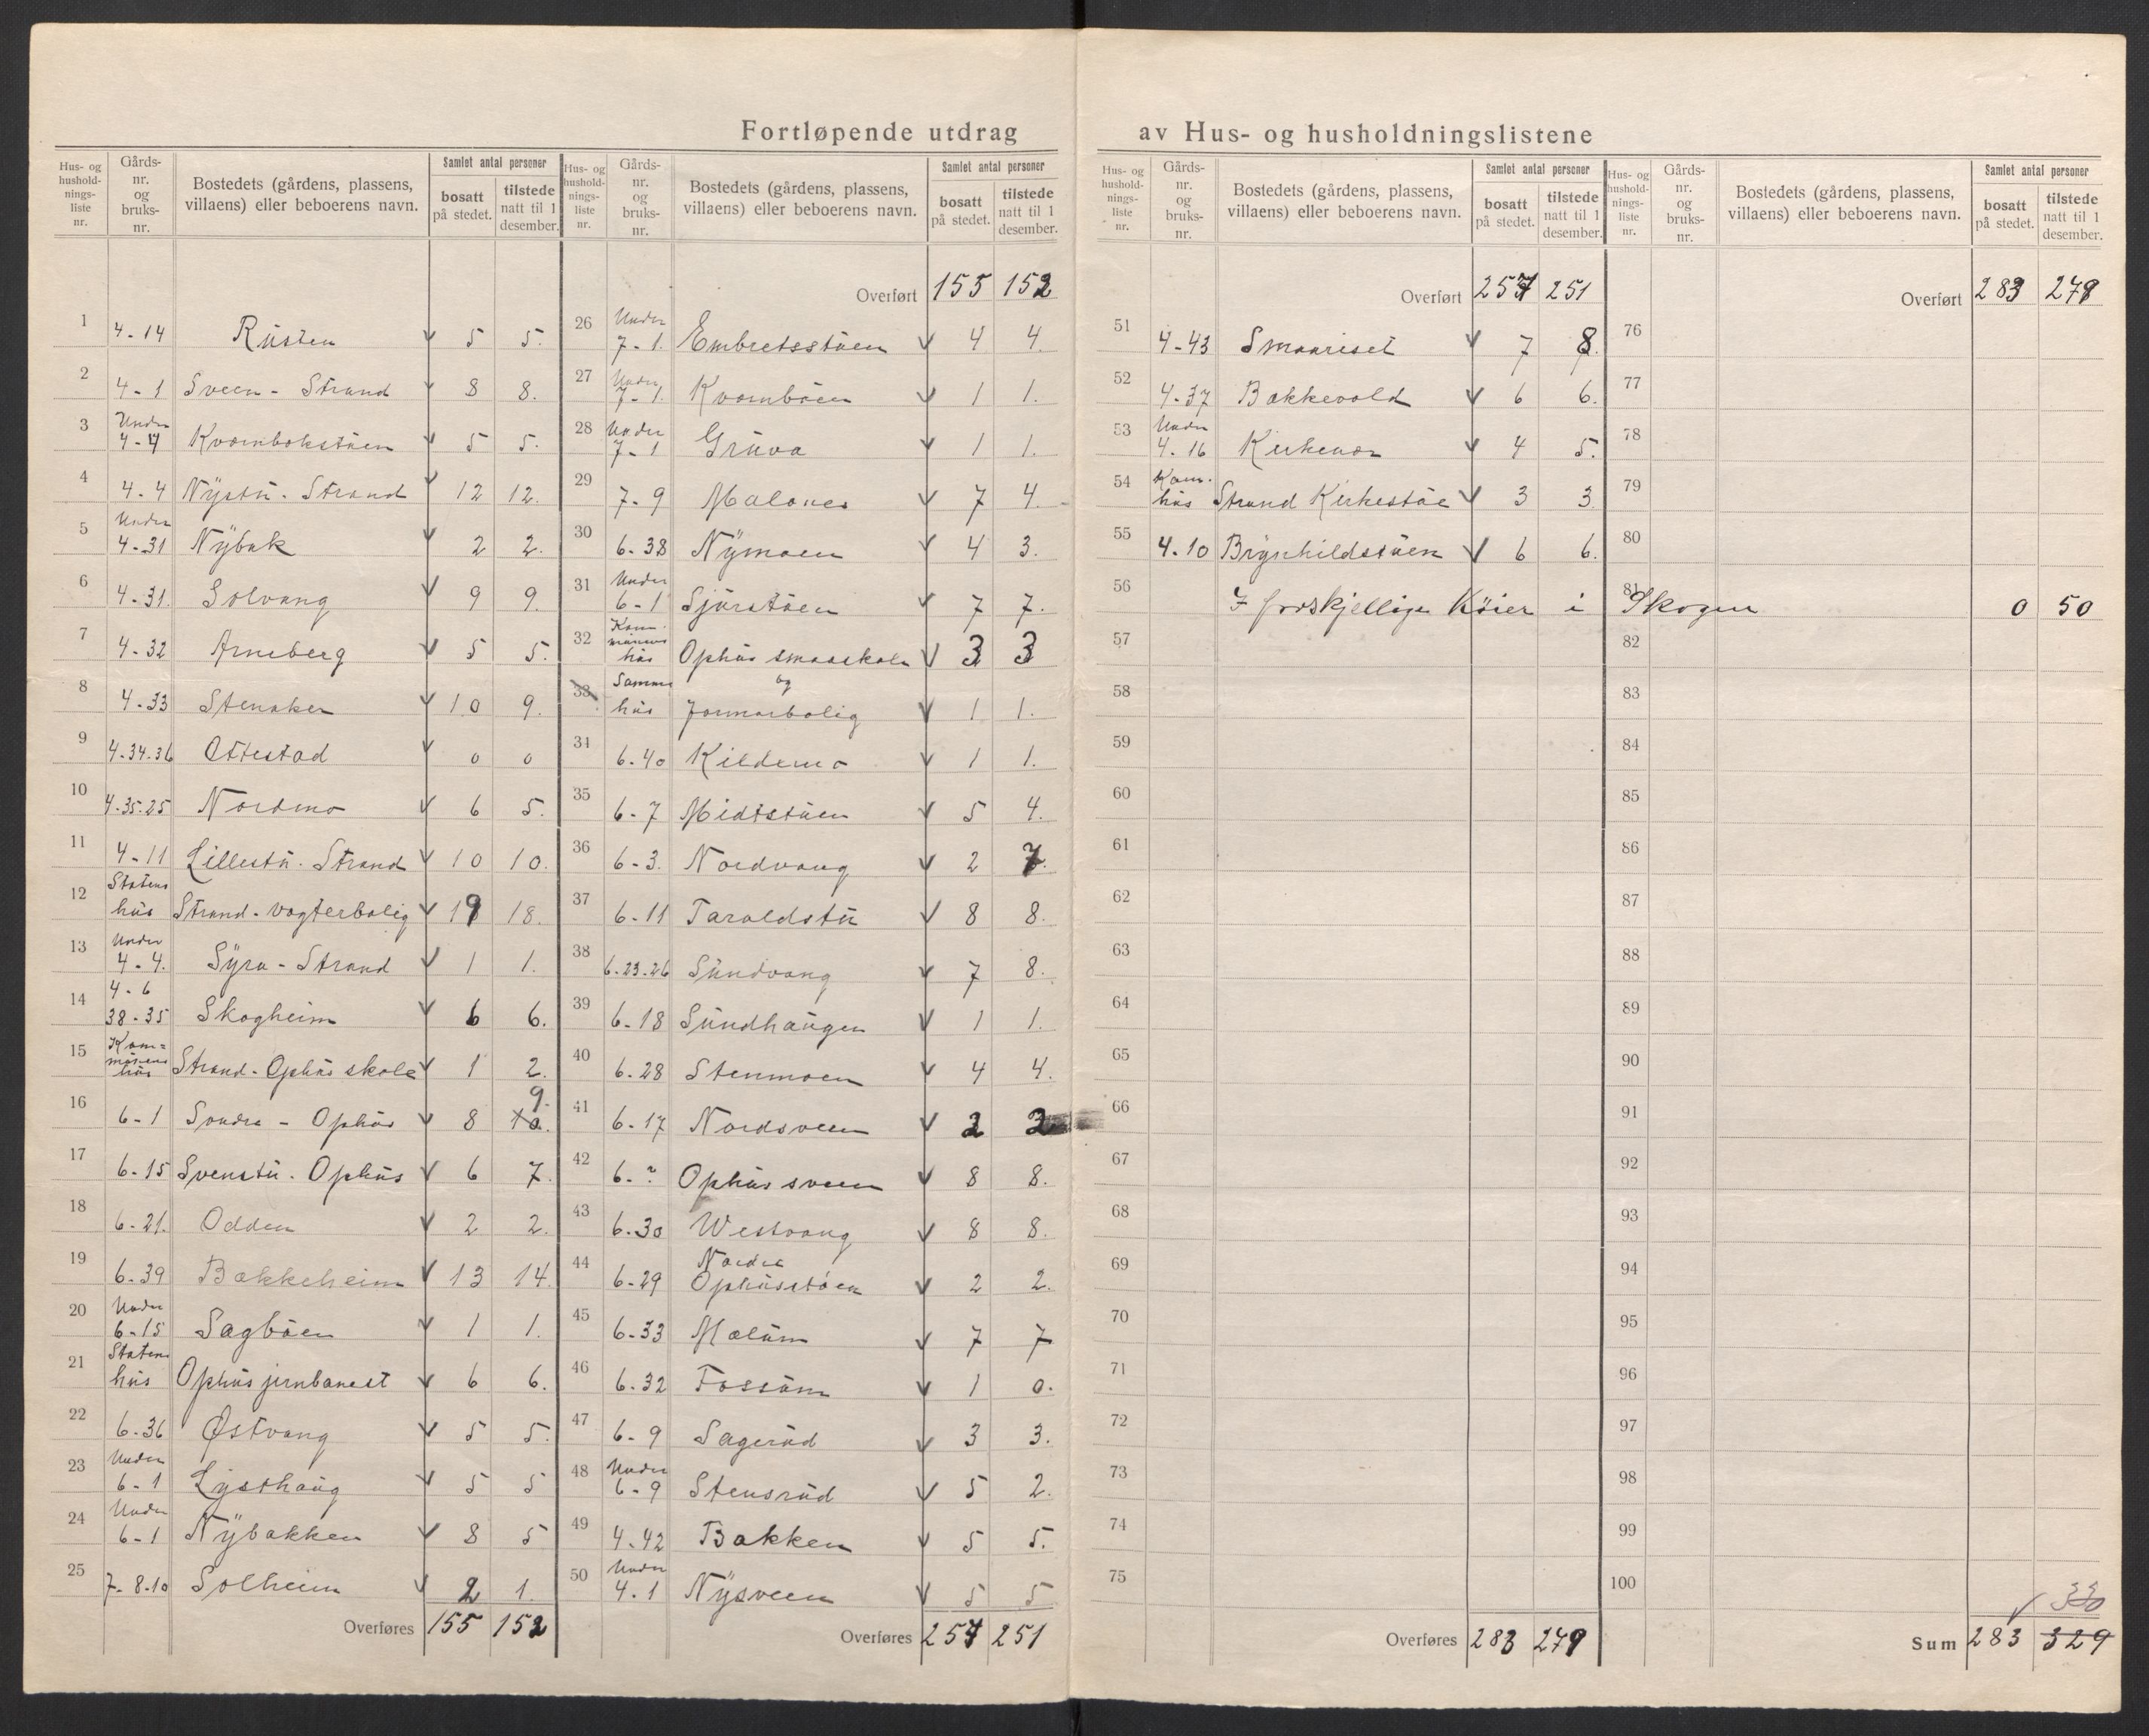 Fortløpende utdrag av Hus- og husholdningslistene
Hus- og husholdnings-liste nr. Gårds-nr. og bruks-nr. Bostedets (gårdens, plassens, villaens) eller beboerens navn. Samlet antal personer bosatt på stedet. tilstede natt til 1 desember.
1 4-14 Rüsten 5 5.
2 4-1 Sveen - Strand 8 8.
3 Under 4-4 Kvernbakstüen 5 5.
4 4-4 Nÿstü - Strand 12 12.
5 Under 4-31 Nÿbak 2 2.
6 4-31. Solvang 9 9.
7 4-32 Arneberg 5 5.
8 4-33 Stenaker 10 9.
9 4-34.36 Ottestad 0 0
10 4-35.25 Nordmo 6 5.
11 4-11 Lillestü - Strand 10 10.
12 Statens hüs Strand - Vogterbolig 19 18.
13 Under 4-4. Sÿra - Strand 1 1.
14 4-6 38-35 Skogheim 6 6.
15 Kommünens hüs Strand - Ophüs skole 1 2.
16 6-1 Søndre - Ophüs 8 9.
17 6-15 Svenstü - Ophüs 6 7.
18 6-21. Odden 2 2.
19 6-39 Bakkeheim 13 14.
20 Under 6-15 Sagbüen 1 1.
21 Statens hüs Ophüs jernbanest 6 6.
22 6-36 Østvang 5 5.
23 Under 6-1 Lÿsthaüg 5 5
24 Under 6-1 Nÿbakken 8 5
25 7-8.10 Solheim 2 1.
Overføres 155 152
Hus- og husholdnings-liste nr. Gårds-nr. og bruks-nr. Bostedets (gårdens, plassens, villaens) eller beboerens navn. Samlet antal personer bosatt på stedet. tilstede natt til 1 desember.
Overført 155 152
26 Under 7-1. Embretsstüen 4 4.
27 Under 7-1. Kvernbüen 1 1.
28 Under 7-1 Grüva 1 1.
29 7-9 Malones 7 4.
30 6-38 Nÿmoen 4 3.
31 Under 6-1 Sjürstüen 7 7.
32 Kommünens hüs Ophüs smaaskole 3 3
og
33 Samme hüs Formorbolig 1 1.
34 6-40 Kildemo 1 1.
35 6-7 Midtstüen 5 4.
36 6-3. Nordvang 2 7.
37 6-11 Taraldstü 8 8.
38 6-23-26 Sündvang 7 8.
39 6-18 Sündhaügen 1 1.
40 6-28 Stenmoen 4 4.
41 6-17 Nordsveen 2 2
42 6-? Ophüs sveen 8 8.
43 6-30 Westvang 8 8.
44 6-29 Nordre Ophüsstüen 2 2.
45 6-33 Mælüm 7 7
46 6-32 Fossüm 1 0.
47 6-9 Sagerüd 3 3.
48 Under 6-9 Stensrüd 5 2.
49 4-42 Bakken 5 5.
50 Under 4-1 Nÿsveen 5 5
Overføres 257 251
Hus- og husholdnings-liste nr. Gårds-nr. og bruks-nr. Bostedets (gårdens, plassens, villaens) eller beboerens navn. Samlet antal personer bosatt på stedet. tilstede natt til 1 desember.
Overført 257 251
51 4-43 Smaariset 7 8.
52 4-37 Bakkevold 6 6.
53 Under 4-16 Kirkemo 4 5.
54 Kom. hüs Strand Kirkestüe 3 3
55 4-10 Brÿnhildstüen 6 6.
56 I forskjellige Köier i Skogen 0 50
57
58
59
60
61
62
63
64
65
66
67
68
69
70
71
72
73
74
75
Overføres 283 279
Hus- og husholdnings-liste nr. Gårds-nr. og bruks-nr. Bostedets (gårdens, plassens, villaens) eller beboerens navn. Samlet antal personer bosatt på stedet. tilstede natt til 1 desember.
Overført 283 279
76
77
78
79
80
81
82
83
84
85
86
87
88
89
90
91
92
93
94
95
96
97
98
99
100
330
Sum 283 329